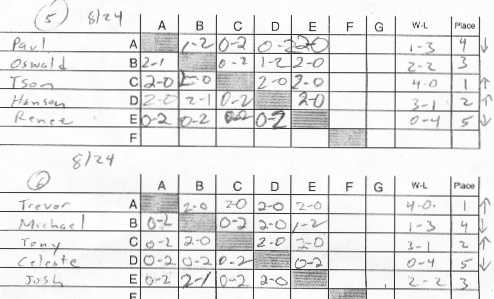 5 8/24
A B C D E F G W-L Place
Paul A 1-2 0-2 0-2 2-0 1-3 4 ↓
Oswald B 2-1 0-2 1-2 2-0 2-2 3
Tson C 2-0 2-0 2-0 2-0 4-0 1 ↑
Hanson D 2-0 2-1 0-2 2-0 3-1 2 ↑
Renee E 0-2 0-2 0-2 0-2 0-4 5 ↓
F
6 8/24
A B C D E F G W-L Place
Trevor A 2-0 2-0 2-0 2-0 4-0 1 ↑
Michael B 0-2 0-2 2-0 1-2 1-3 4 ↓
Tony C 0-2 2-0 2-0 2-0 3-1 2 ↑
Celeste D 0-2 0-2 0-2 0-2 0-4 5 ↓
Josh E 0-2 2-1 0-2 2-0 2-2 3
F